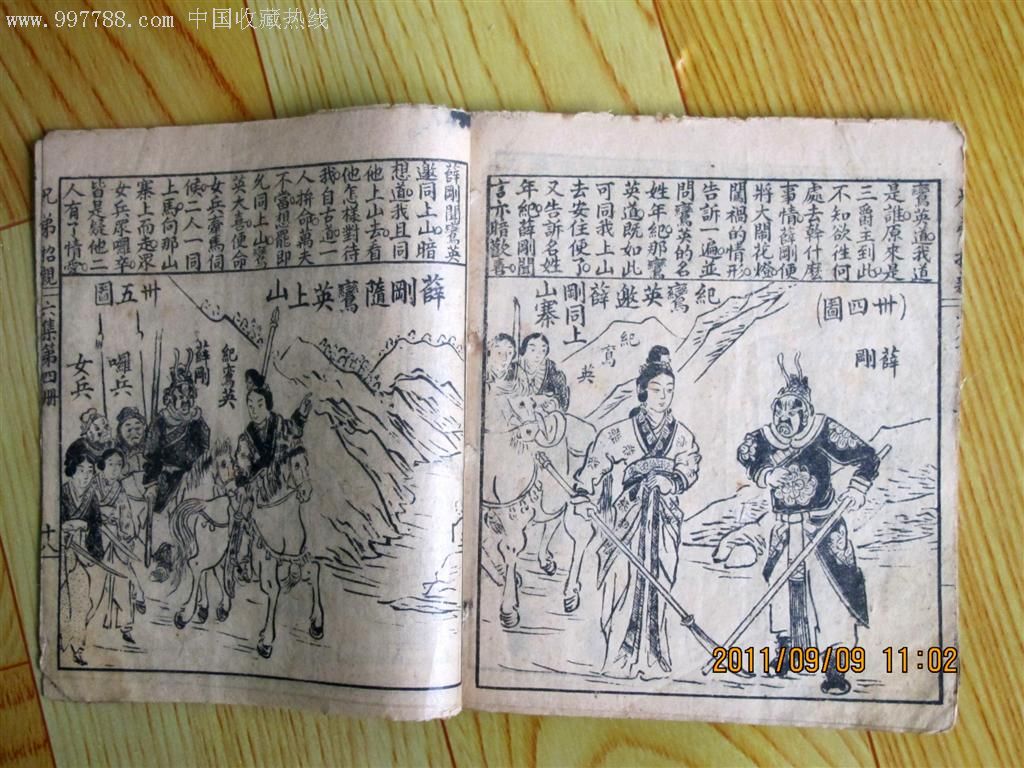 www.997788.com 中国收藏热线
鸞英道我道
是誰原來是
三爵王到此
不知欲徃何
處去幹什麼
事情薛剛便
將大鬧花燈
闖禍的情形
告訴一遍並
問鸞英的名
姓年紀那鸞
英道既如此
可同我上山
去安住便了
又告訴名姓
年紀薛剛聞
言亦暗歡喜
(卅四圖)
紀鸞英邀薛剛同上山寨
薛剛
紀鸞英
薛剛聞鸞英
邀同上山暗
想道我且同
他上山去看
他怎樣對待
我自古道一
人拚命萬夫
不當想罷即
允同上山鸞
英大喜便命
女兵牽馬伺
候二人一同
上馬向那山
寨上而走眾
女兵囉卒
皆是疑他二
人有了情意
薛剛隨鸞英上山
卅五圖
紀鸞英
薛剛
囉兵
女兵
兄弟招親
六集第四冊
十八
2011/09/09 11:02